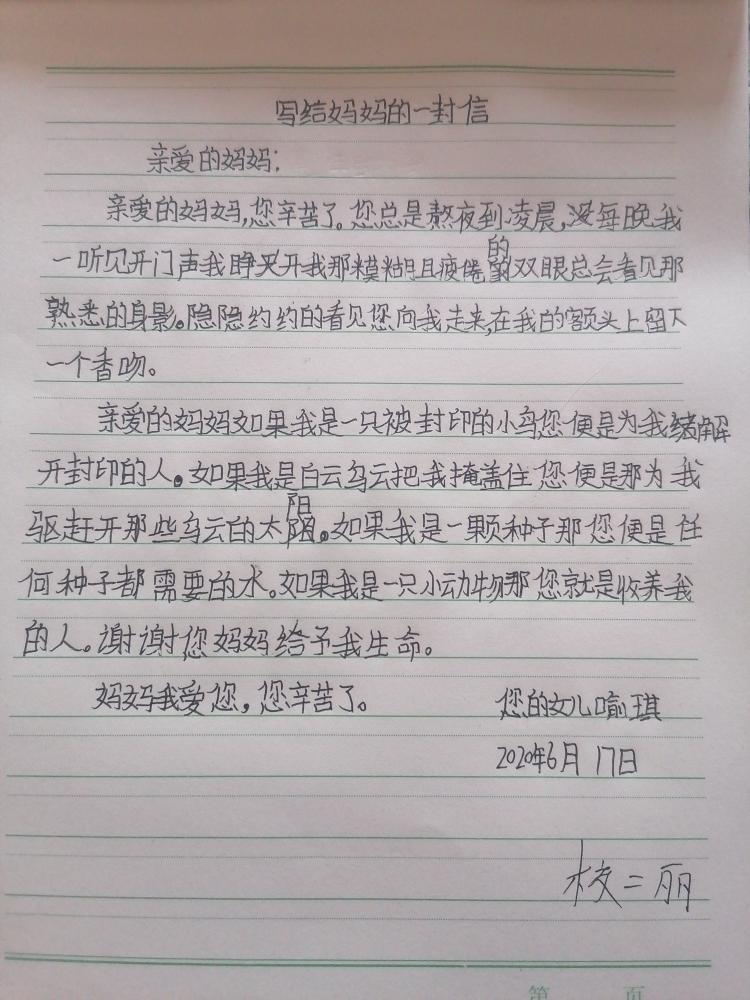 写给妈妈的一封信
亲爱的妈妈:
亲爱的妈妈,您辛苦了。您总是熬夜到凌晨,每晚我
一听见开门声我睁开我那模糊且疲倦的双眼总会看见那
熟悉的身影。隐隐约约的看见您向我走来,在我的额头上留下
一个香吻。
亲爱的妈妈如果我是一只被封印的小鸟,您便是为我解
开封印的人。如果我是白云乌云把我掩盖住您便是那为我
驱赶开那些乌云的太阳。如果我是一颗种子那您便是任
何种子都需要的水。如果我是一只小动物那您就是收养我
的人。谢谢您妈妈给予我生命。
妈妈我爱您,您辛苦了。 您的女儿喻琪
2020年6月17日
校二丽
第 页